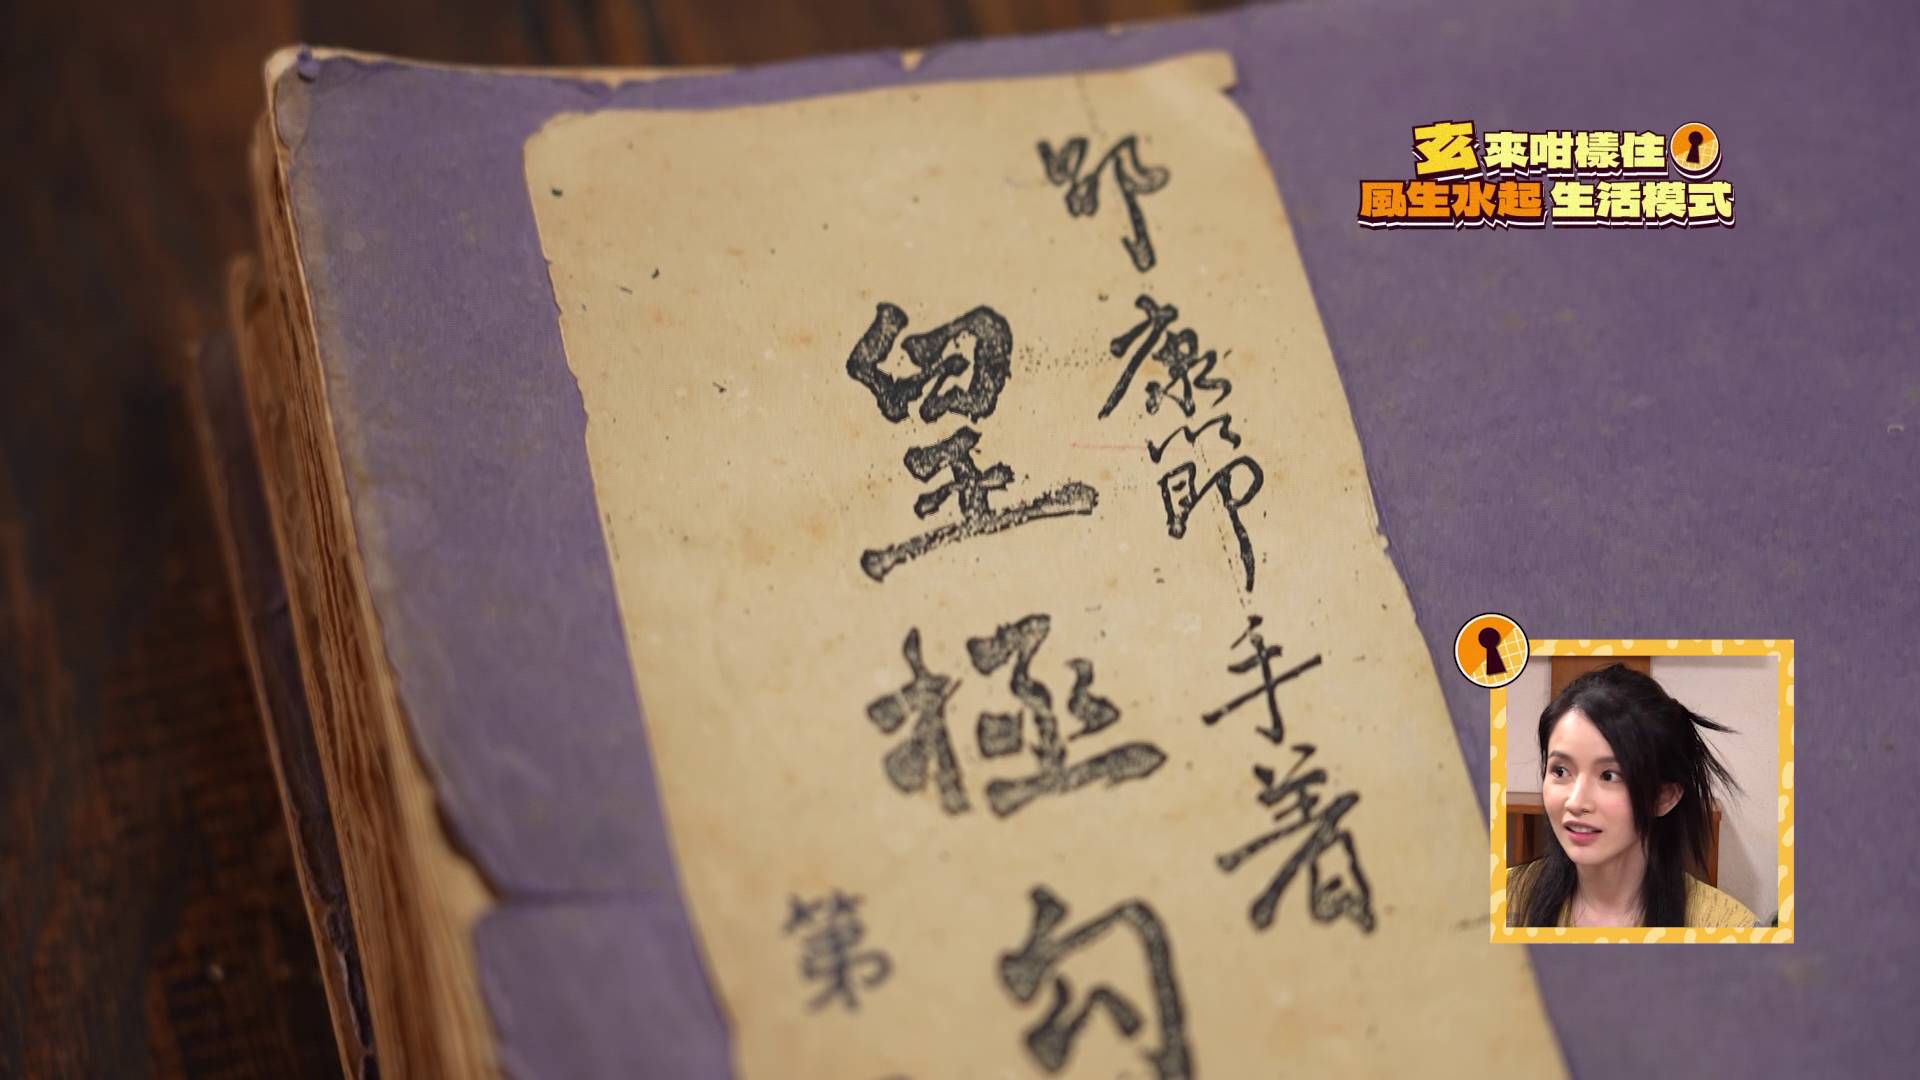 玄來咁樣住
風生水起 生活模式
邵康節手著
皇極
第